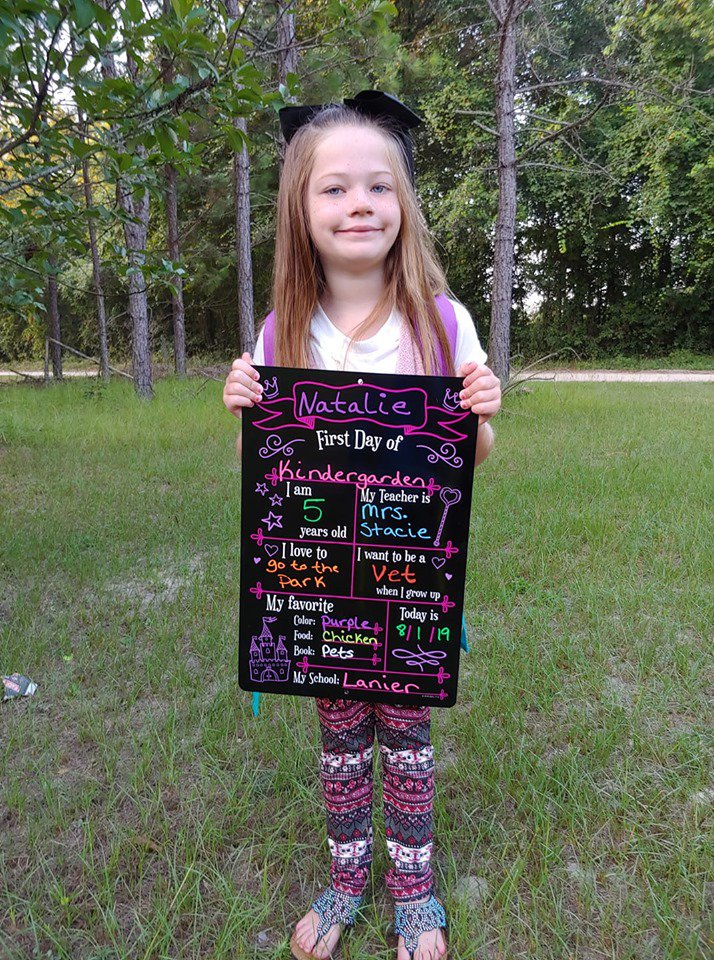 Natalie
First Day of
Kindergarden
I am
5
years old
My Teacher is
Mrs.
Stacie
I love to
go to the
Park
I want to be a
Vet
when I grow up
My favorite
Color: Purple
Food: Chicken
Book: Pets
Today is
8/1/19
My School: Lanier